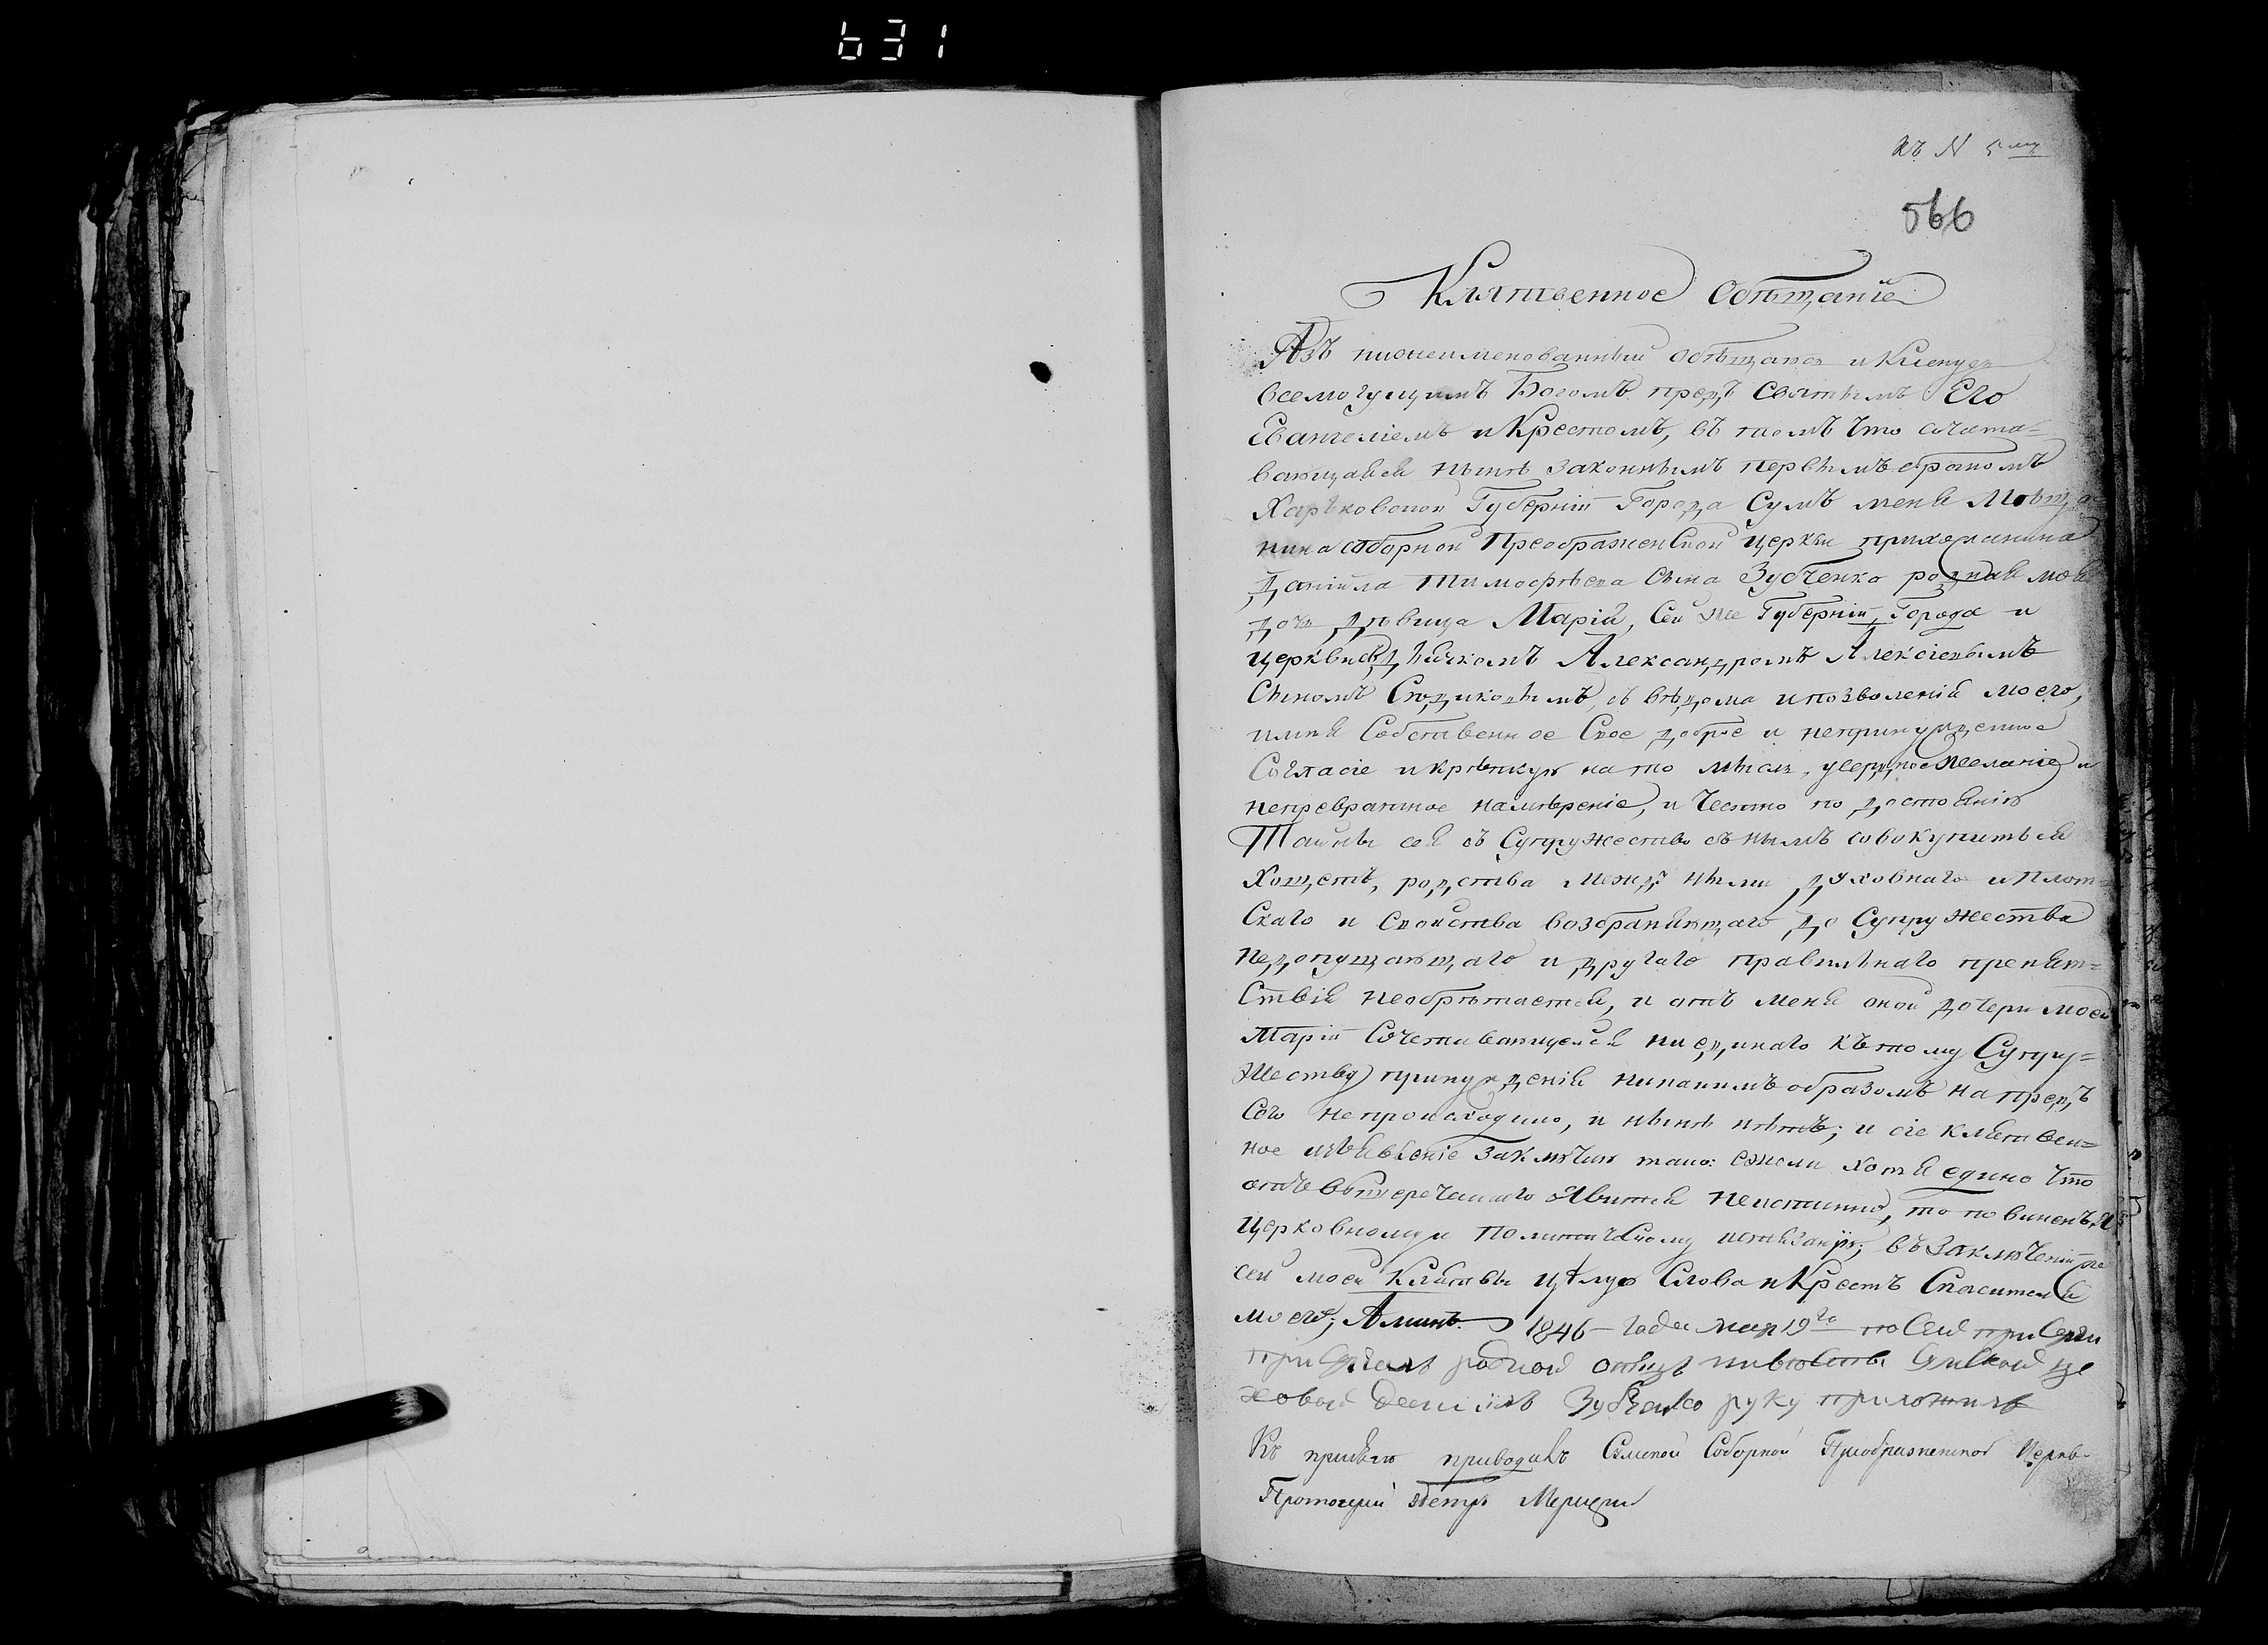 631
къ N 5му
566
Клятвенное Обѣщаніе
Азъ нижеименованный обѣщаюсь и Кленусь
всемогущимъ Богомъ предъ Святымъ Его
Евангеліемъ и Крестомъ, въ томъ что сочета-
вающаяся нынѣ законнымъ первымъ бракомъ
Харьковской Губерніи Города Сумъ меня Мѣща-
нина Соборной Преображенской церкви прихожанина
Даніила Тимофѣева Сына Зубченко родная моя
дочь дѣвица Марія, Сей же Губерніи, Города и
церкви съ дьячкомъ Александромъ Алексіевымъ
Сыномъ, съ вѣдома и позволенія моего,
имѣя Собственное Свое доброе и непринужденное
Согласіе и крѣпкую на то мысль, усердное желаніе и
непревратное намѣреніе, и честно по достоянію
Тайны сея въ Супружество съ нымъ совокупиться
хощетъ, родства между ными духовнаго и плот-
Скаго и Свойства возбраняющаго до Супружества
недопущающаго и другаго правильнаго препят=
Ствія необрѣтается, и отъ меня оной дочери моей
Маріи Сочетавающейся ни единаго къ тому Супру=
жеству принужденія никакимъ образомъ напредъ
Сего непроисходило, и нынѣ нѣтъ; и сіе клятвен=
ное изъявленіе заключаю тако: ежели хотя едино что
отъ вышереченнаго явится неистинно, то повиненъ я
церковному и Политическому истязанію; въ заключеніи же
сей моей Клятвы цѣлую Слова и Крестъ Спасителя
моего; Аминь. 1846 года мая 19го по Сей при Сяги
родной отецъ
Зубченко руку приложилъ
Къ присягѣ приводилъ Сумской Соборной Преображенской Церкви
Протоіерей Петръ